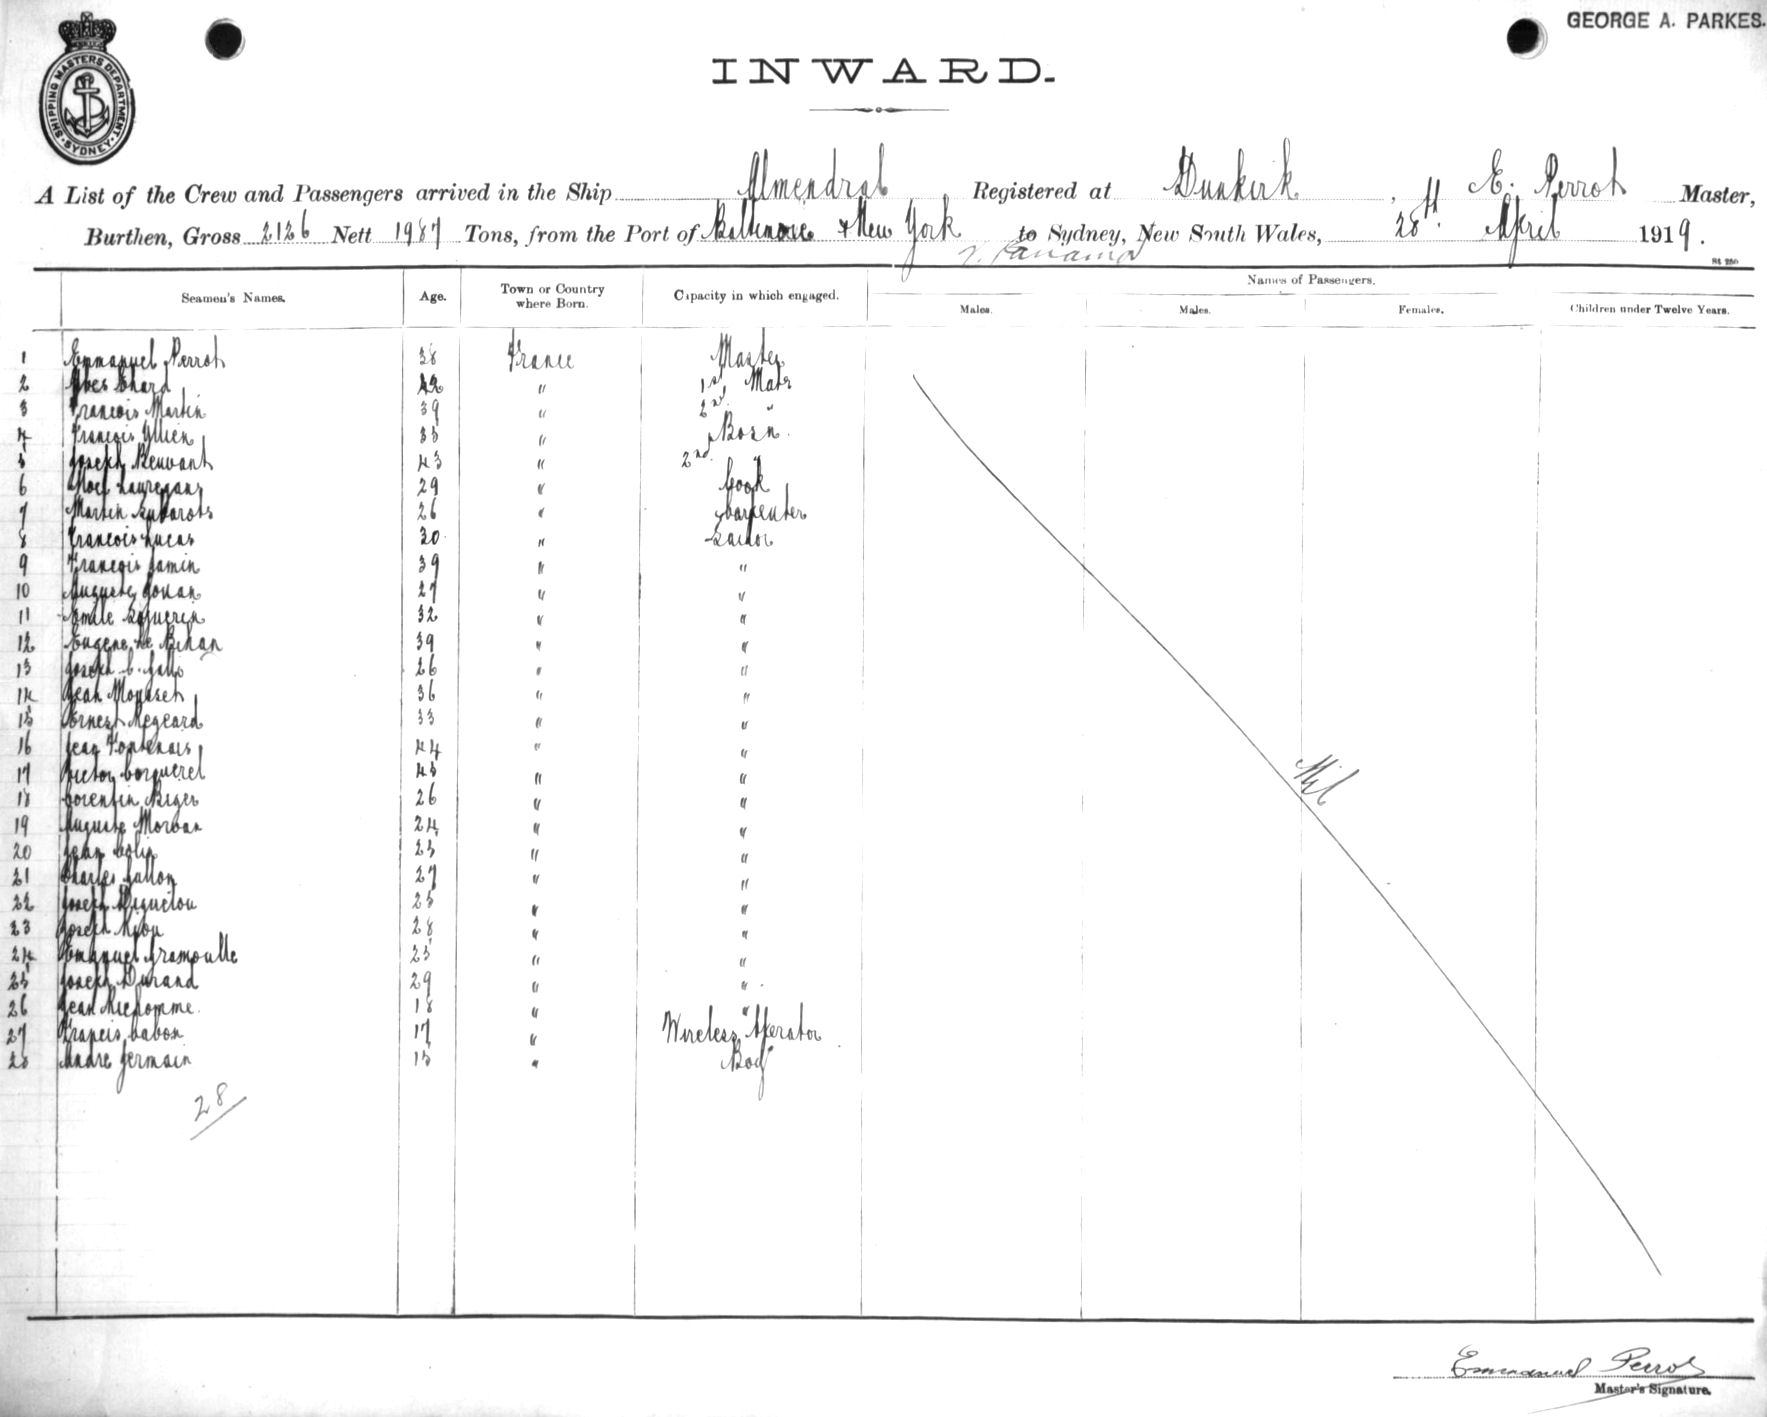 GEORGE A. PARKES.
SHIPPING MASTERS DEPARTMENT. SYDNEY.
INWARD.
A List of the Crew and Passengers arrived in the Ship Almendral Registered at Dunkirk, E. Perrot Master,
Burthen, Gross 2126 Nett 1987 Tons, from the Port of Baltimore & New York to Sydney, New South Wales, 28th April 1919.
v. Panama
Seamen's Names. Age. Town or Country where Born. Capacity in which engaged. Names of Passengers.
Males. Males. Females. Children under Twelve Years.
1 Emmanuel Perrot 38 France Master
2 Yves Ehard 42 " 1st Mate
3 Francois Martin 39 " 2nd "
4 Francois 35 " Bosn.
5 Joseph 43 " 2nd "
6 Noel 29 " Cook
7 Martin 26 " Carpenter
8 Francois Lucas 30 " Sailor
9 Francois Jamin 39 " "
10 Auguste Jouan 27 " "
11 Emile 32 " "
12 Eugene Le Bihan 39 " "
13 Joseph 26 " "
14 Jean 36 " "
15 Ernest Megeard 33 " "
16 Jean Fontenais 44 " "
17 Victor Corquerel 45 " "
18 Corentin Riger 26 " "
19 Auguste Morvan 24 " "
20 Jean Colin 25 " "
21 Charles 27 " "
22 Joseph 25 " "
23 Joseph 28 " "
24 Emanuel Gramoulle 25 " "
25 Joseph Durand 29 " "
26 Jean Richomme. 18 " "
27 Francis Cabon 17 " Wireless Operator
28 Andre Germain 15 " Boy
Nil
28
Emmanuel Perrot
Master's Signature.